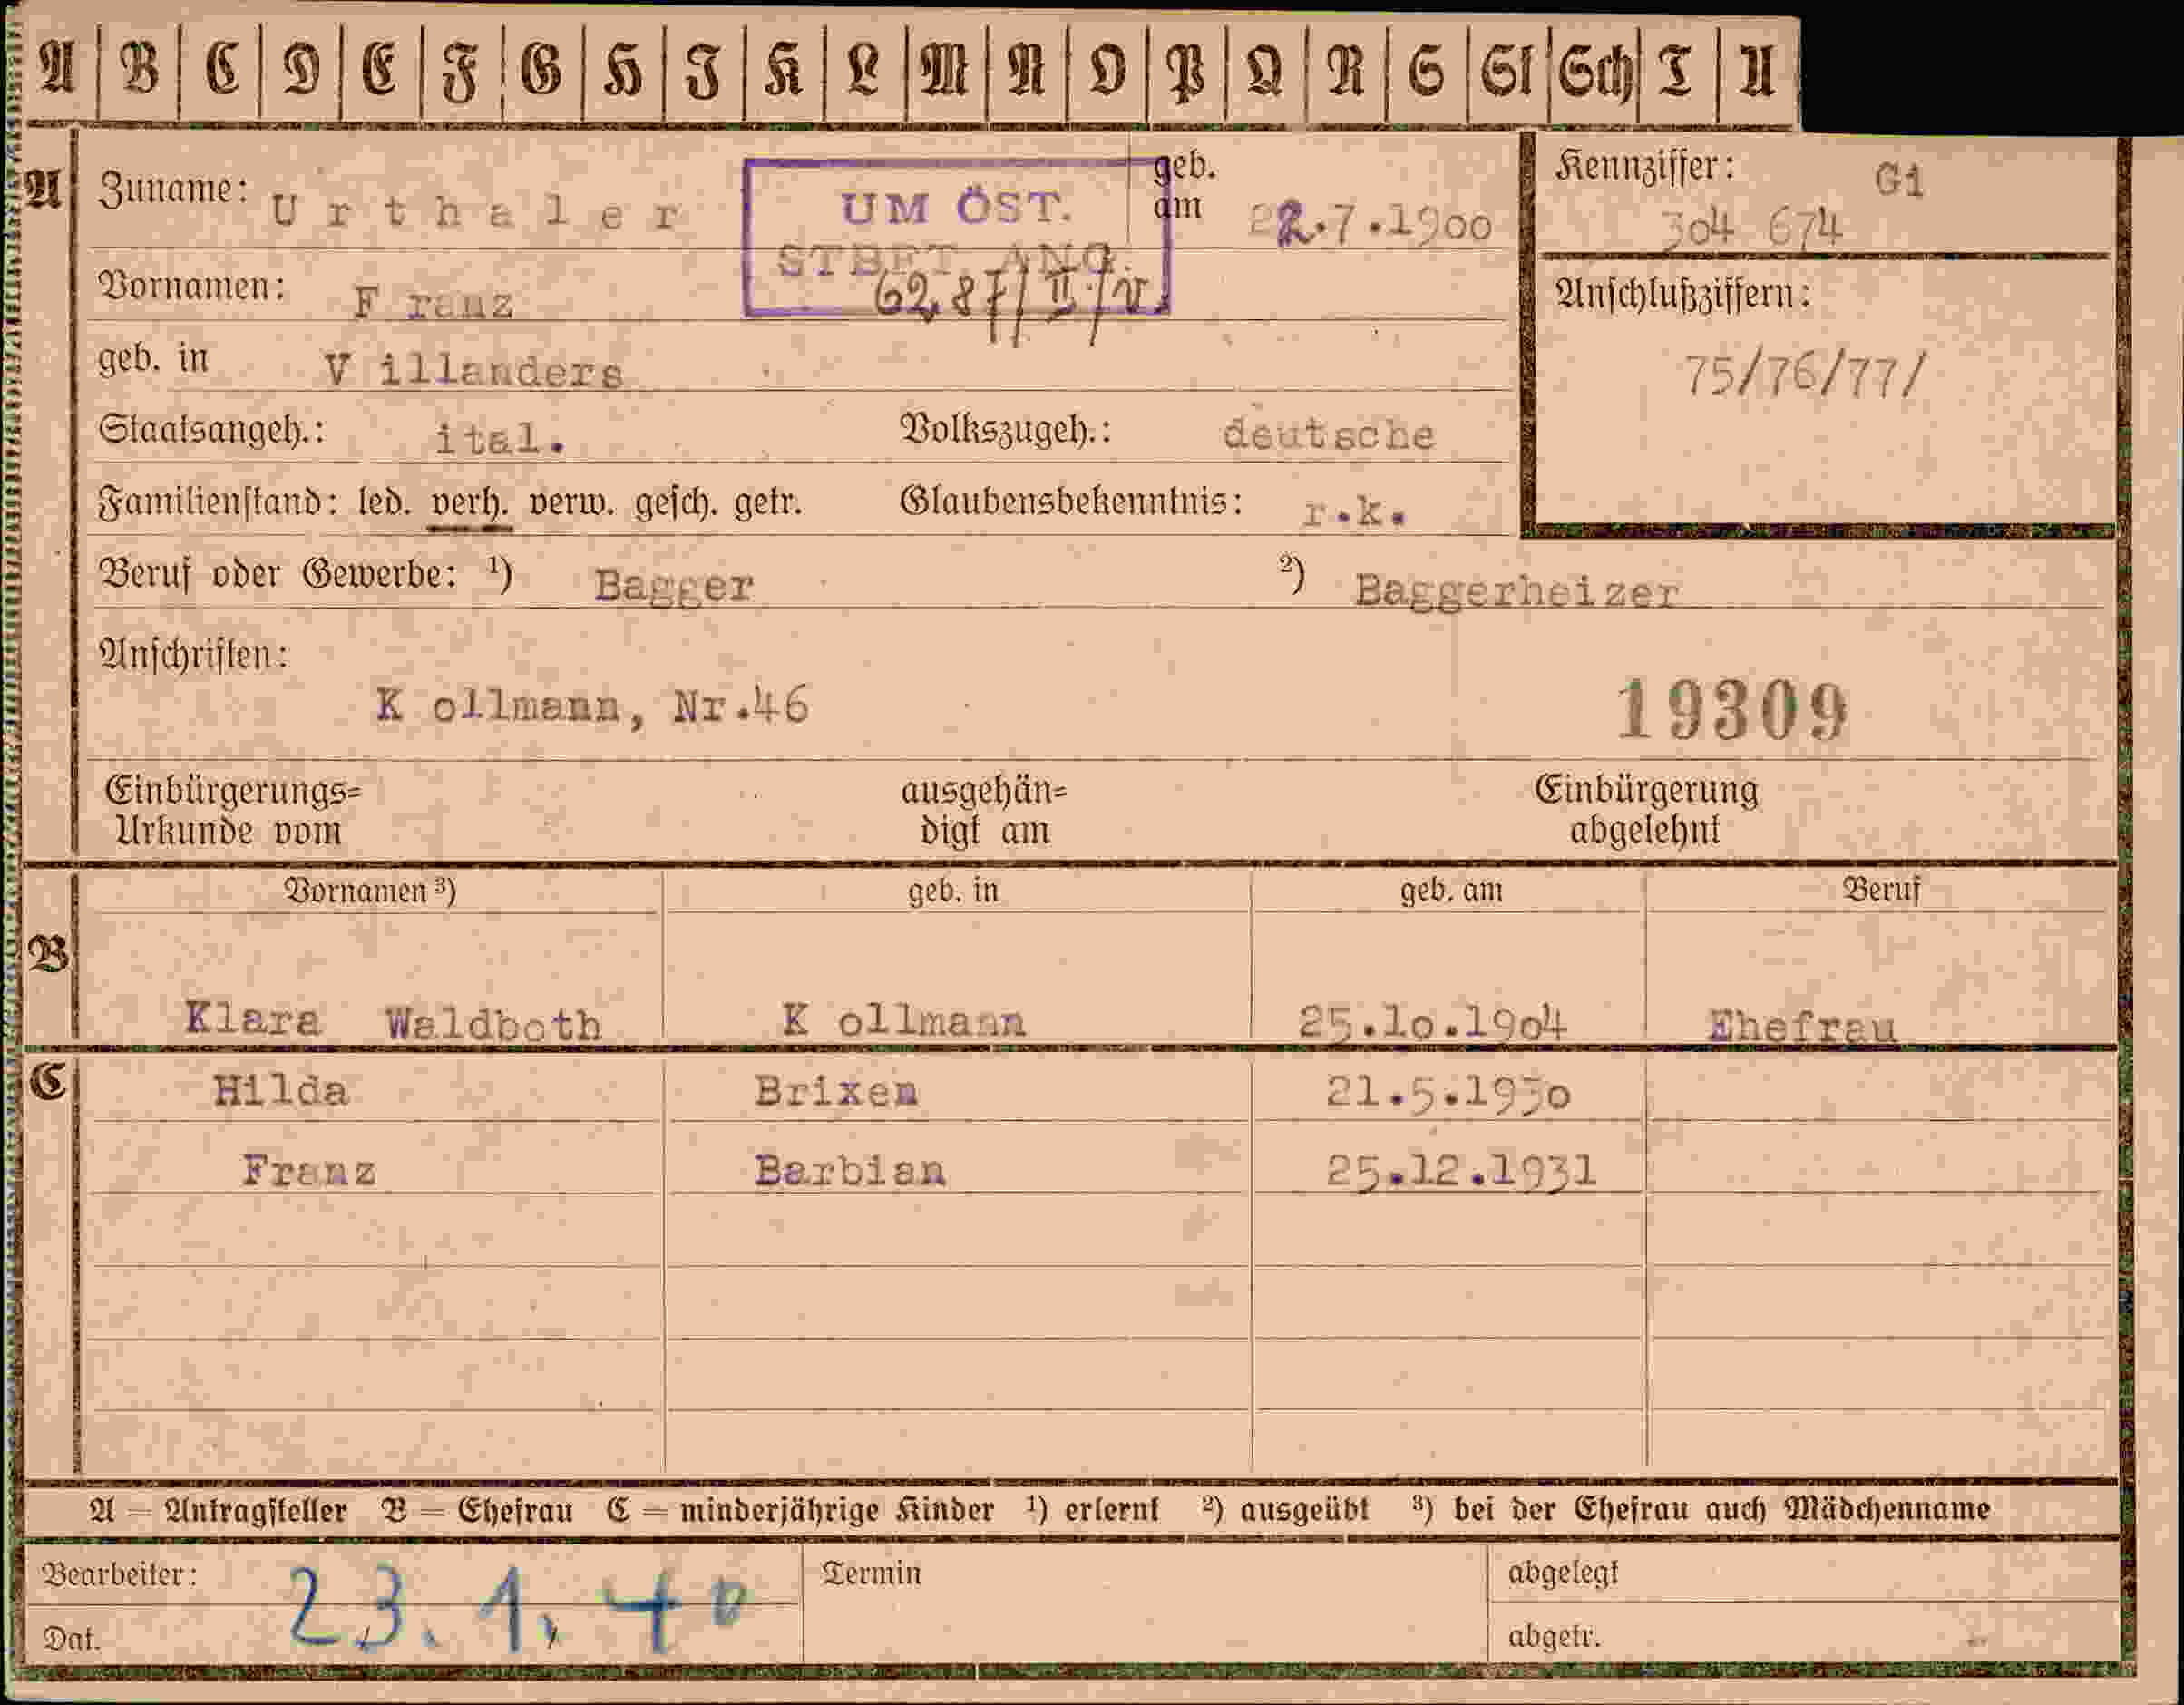 A B C D E F G H I K L M N O P Q R S St Sch T U
A Zuname: Urthaler geb. am 22.7.1900 Kennziffer: G1
304 674
UM ÖST.
STBFT ANG.
6287/II/
Vornamen: F ranz Anschlußziffern:
75/76/77/
geb. in V illanders
Staatsangeh.: ital. Volkszugeh.: deutsche
Familienstand: led. verh. verw. gesch. getr. Glaubensbekenntnis: r.k.
Beruf oder Gewerbe: ¹) Bagger ²) Baggerheizer
Anschriften:
K ollmann, Nr.46 19309
Einbürgerungs= ausgehän= Einbürgerung
Urkunde vom digt am abgelehnt
Vornamen ³) geb. in geb. am Beruf
B Klara Waldboth K ollmann 25.10.1904 Ehefrau
C Hilda Brixen 21.5.1930
Franz Barbian 25.12.1931
A = Antragsteller B = Ehefrau C = minderjährige Kinder ¹) erlernt ²) ausgeübt ³) bei der Ehefrau auch Mädchenname
Bearbeiter: Termin abgelegt
Dat. 23.1.40 abgetr.